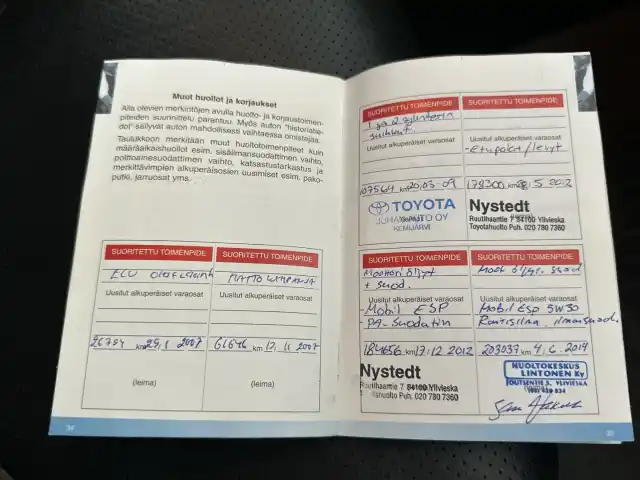 Muut huollot ja korjaukset
Alla olevien merkintöjen avulla huolto- ja korjaustoimen-
piteiden suunnittelu parantuu. Myös auton "historiatie-
dot" säilyvät auton mahdollisesti vaihtaessa omistajaa.
Taulukkoon merkitään muut huoltotoimenpiteet kuin
määräaikaishuollot esim. sisäilmansuodattimen vaihto,
polttoainesuodattimen vaihto, katsastustarkastus ja
merkittävimpien alkuperäisosien uusimiset esim. pako-
putki, jarruosat yms.
SUORITETTU TOIMENPIDE
ECU
Uusitut alkuperäiset varaosat
26784 km 29.1 2007
(leima)
SUORITETTU TOIMENPIDE
Uusitut alkuperäiset varaosat
61646 km 12.11 2007
(leima)
34
SUORITETTU TOIMENPIDE
1 ja 2 sylinterin
Uusitut alkuperäiset varaosat
107564 km 20.03.09
TOYOTA
AUTO OY
KEMIJÄRVI
SUORITETTU TOIMENPIDE
Uusitut alkuperäiset varaosat
-Etupalat/levyt
178300 km 5 2012
Nystedt
Ruutihaantie 7 84100 Ylivieska
Toyotahuolto Puh. 020 780 7360
SUORITETTU TOIMENPIDE
Moottoriöljyt
+ suod.
Uusitut alkuperäiset varaosat
-Mobil ESP
-PA-Suodatin
184656 km 17.12 2012
Nystedt
Ruutihaantie 7 84100 Ylivieska
Puh. 020 780 7360
SUORITETTU TOIMENPIDE
Uusitut alkuperäiset varaosat
Mobil Esp 5W30
Raitisilma, ilmansuod.
203037 km 4.6.2014
HUOLTOKESKUS
LINTONEN Ky
YLIVIESKA
35